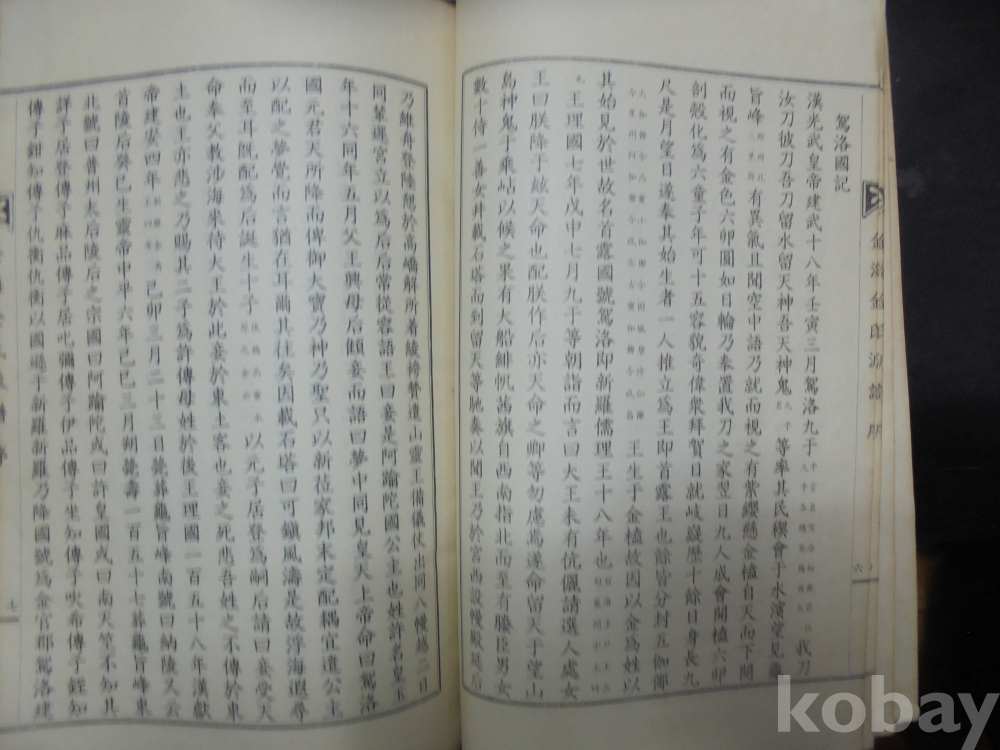 駕洛國記
漢光武皇帝建武十八年壬寅三月駕洛九干我刀
汝刀彼刀吾刀留水留天神吾天神鬼九干等率其民稧會于水濱望見龜
旨峰有異氣且聞空中語乃就而視之有紫纓懸金榼自天而下開
而視之有金色六卵圓如日輪乃奉置我刀之家翌日九人咸會開榼六卵
剖殼化爲六童子年可十五容貌奇偉衆拜賀日就岐嶷歷十餘日身長九
尺是月望日遂奉其始生者一人推立爲王即首露王也餘皆分封五伽倻
王生于金榼故因以金爲姓以
其始見於世故名首露國號駕洛即新羅儒理王十八年也
王理國七年戊申七月九干等朝詣而言曰大王未有伉儷請選人處女
王曰朕降于玆天命也配朕作后亦天命之卿等勿慮焉遂命留天于望山
島神鬼于乘岾以候之果有大船緋帆茜旗自西南指北而至有媵臣男女
數十侍一善女井載石塔而到留天等馳奏以聞王乃於宮西設幔殿延后
乃維舟登陸憇於高嶠解所着綾袴贄遺山靈王備儀仗出同入幔越二日
同輦還宮立以爲后后常從容語王曰妾是阿踰陀國公主也姓許名皇玉
年十六同年五月父王與母后傾妾而語曰夢中同見皇天上帝命曰駕洛
國元君天所降而俾御大寶乃神乃聖只以新莅家邦未定配耦宜遣公主
以配之夢覺而言猶在耳爾其往矣因載石塔曰可鎭風濤是故浮海遐尋
而至耳旣配爲后誕生十子以元子居登爲嗣后請曰妾受天
命奉父教涉海來待大王於此妾於東土客也妾之死悲吾姓之不傳於東
土也王亦悲之乃賜其二子爲許傳母姓於後王理國一百五十八年漢獻
帝建安四年己卯三月二十三日薨葬龜旨峰南號曰納陵又云
首陵后癸巳生靈帝中平六年己巳三月朔薨壽一百五十七葬龜旨峰東
北號曰普州太后陵后之宗國曰阿踰陀或曰許皇國或曰南天竺不知其
詳子居登傳子麻品傳子居叱彌傳子伊品傳子坐知傳子吹希傳子銍知
傳子鉗知傳子仇衡仇衡以國遜于新羅新羅乃降國號爲金官郡駕洛建
六
七
kobay